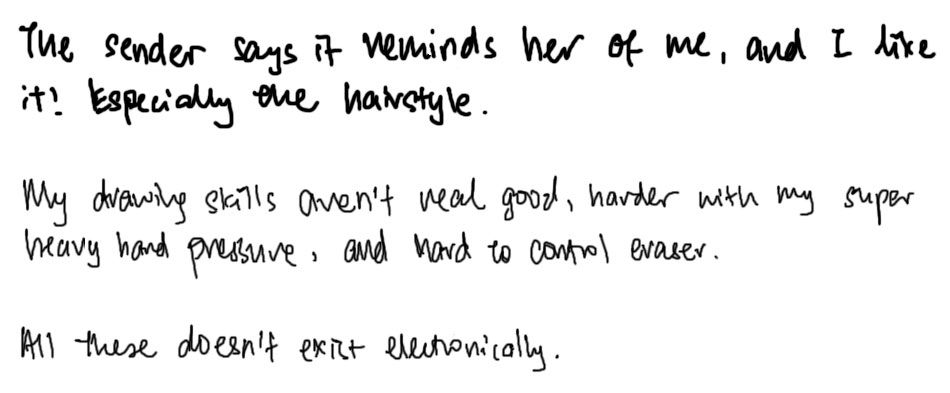 The sender says it reminds her of me, and I like
it! Especially the hairstyle.
My drawing skills aren't real good, harder with my super
heavy hand pressure, and hard to control eraser.
All these doesn't exist electronically.